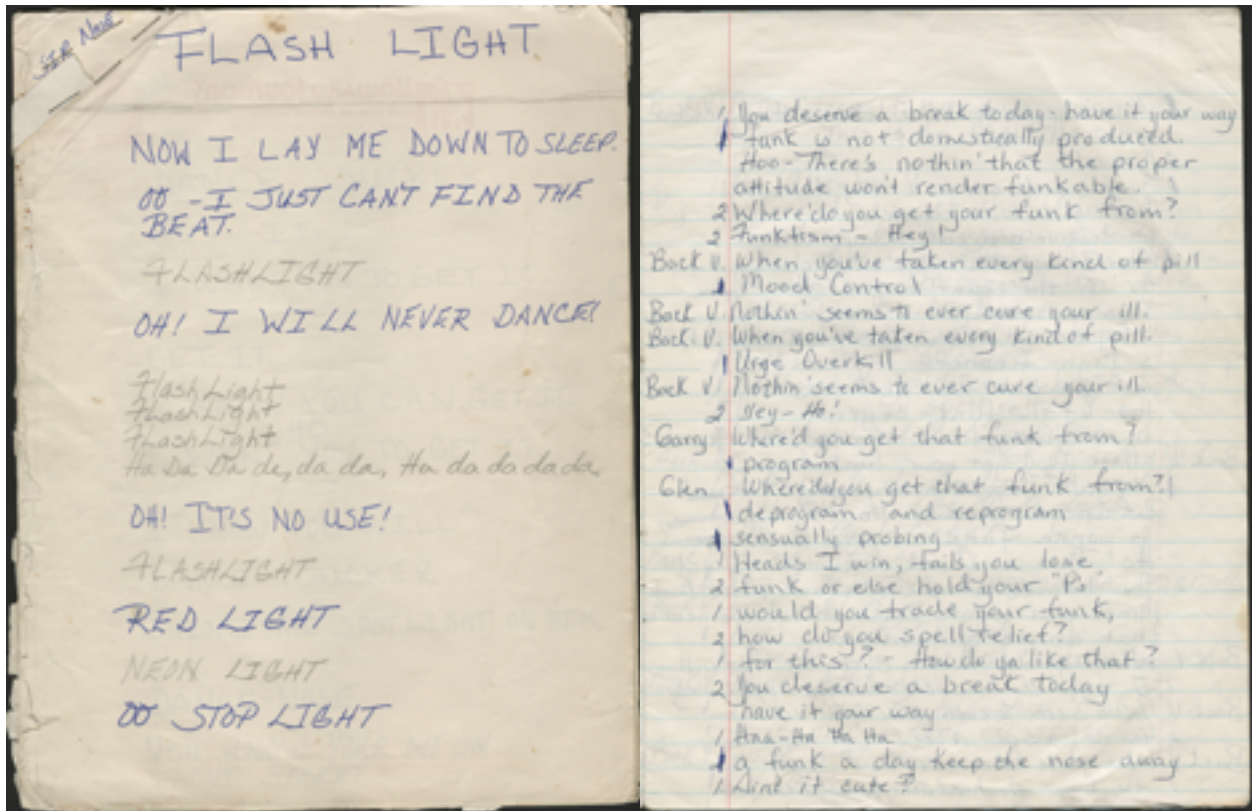 SIR NOSE
FLASH LIGHT
NOW I LAY ME DOWN TO SLEEP.
OO - I JUST CAN'T FIND THE
BEAT.
FLASHLIGHT
OH! I WILL NEVER DANCE!
FlashLight
FlashLight
FlashLight
Ha Da Da de, da da, Ha da da da da
OH! IT'S NO USE!
FLASHLIGHT
RED LIGHT
NEON LIGHT
OO STOP LIGHT
1 You deserve a break today - have it your way
1 funk is not domestically produced.
Hoo - There's nothin' that the proper
attitude won't render funkable.
2 Where'd you get your funk from?
2 Funktism - Hey!
Back V. When you've taken every kind of pill
1 Mood Control
Back V. Nothin' seems to ever cure your ill.
Back V. When you've taken every kind of pill.
1 Urge Overkill
Back V. Nothin' seems to ever cure your ill.
2 Hey - Ho!
Garry Where'd you get that funk from?
program
Glen Where'd you get that funk from?
1 deprogram and reprogram
1 sensually probing
1 Heads I win, tails you lose
2 funk or else hold your "P's"
1 would you trade your funk,
2 how do you spell relief?
1 for this? - How do ya like that?
2 You deserve a break today
have it your way
1 Haa - Ha Ha Ha
1 a funk a day keep the nose away
1 Aint it cute?